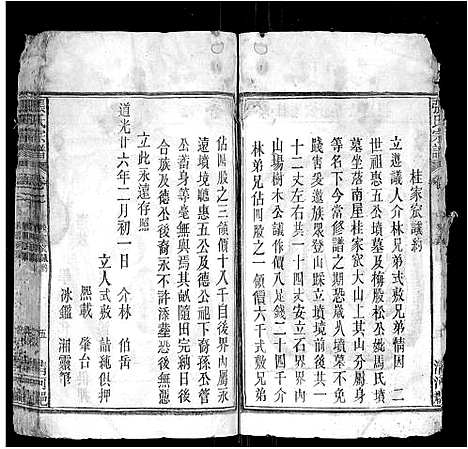 桂家宸議約
立遵議人介林兄弟式敷兄弟情因二
世祖惠五公墳墓及梅股松公妣馬氏墳
墓坐落南星桂家宸大山上其山分屬身
等名下今當修譜之期恐歲久墳墓不免
踐害爰邀族眾登山踩立墳境前後共一
十二丈左右共一十四丈安立石界界內
山場樹木公議作價八足錢二十四千介
林弟兄佔四股之一領價六千式敷兄弟
佔四股之三領價十八千自後界內屬永
遠墳境聽惠五公及德公祖下裔孫公管
公畜身等毫無與焉其畝隨田完納日後
合族及德公後裔永不許添塟恐後無憑
立此永遠存照
道光廿六年二月初一日 介林 伯岳
立人式敷 詰純俱押
熙載 肇台
冰鑑 湘靈筆
五
清河